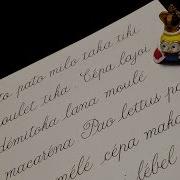 to pato milo taka tiki
oulet tika . Cépa lajoi
démitoka lana moulé
macaréna Pao lettus pa
mélé cépa maka
lébel